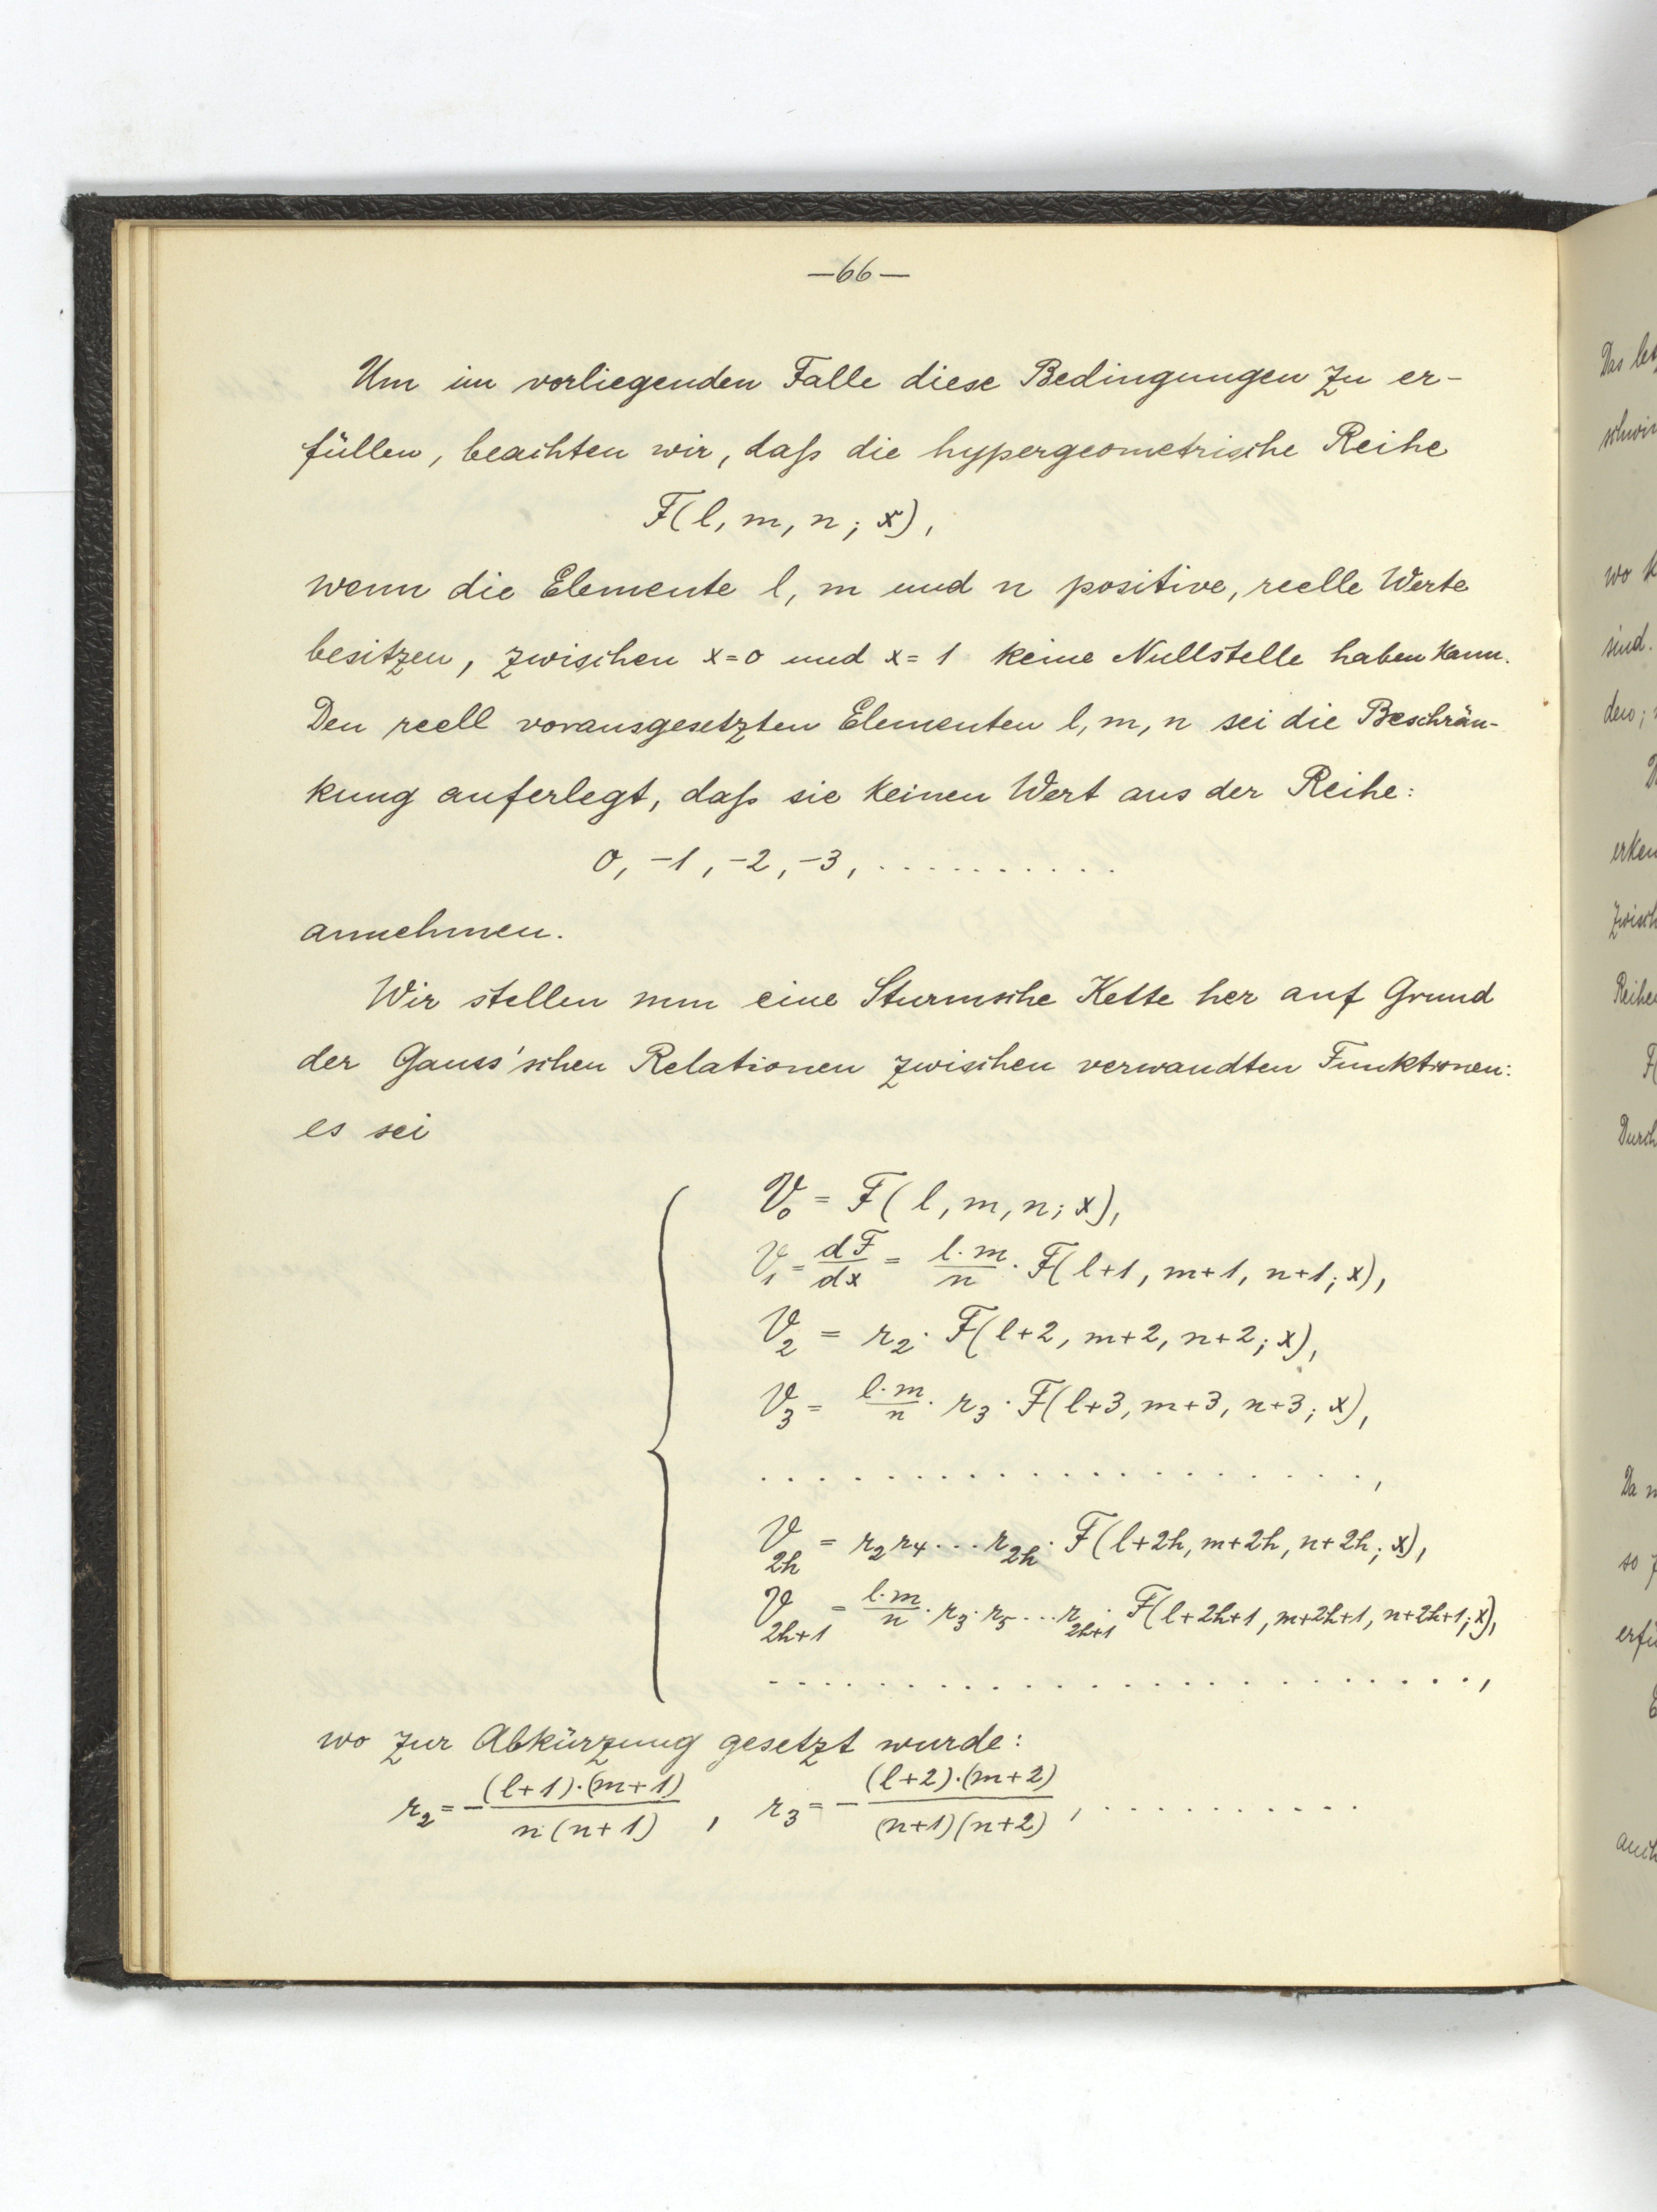 —66—
Um im vorliegenden Falle diese Bedingungen zu er-
füllen, beachten wir, daß die hypergeometrische Reihe
F(l, m, n; x),
wenn die Elemente l, m und n positive, reelle Werte
besitzen, zwischen x=0 und x=1 keine Nullstelle haben kann.
Den reell vorausgesetzten Elementen l, m, n sei die Beschrän-
kung auferlegt, daß sie keinen Wert aus der Reihe:
0, -1, -2, -3, ...........
annehmen.
Wir stellen nun eine Sturmsche Kette her auf Grund
der Gauss'schen Relationen zwischen verwandten Funktionen:
es sei
V₀ = F(l, m, n; x),
V₁ = dF/dx = l·m/n · F(l+1, m+1, n+1; x),
V₂ = r₂ · F(l+2, m+2, n+2; x),
V₃ = l·m/n · r₃ · F(l+3, m+3, n+3; x),
. . . . . . . . . . . . . . . . . . . ,
V_2h = r₂ r₄ ... r_2h · F(l+2h, m+2h, n+2h; x),
V_2h+1 = l·m/n · r₃ · r₅ ... r_2h+1 · F(l+2h+1, m+2h+1, n+2h+1; x),
. . . . . . . . . . . . . . . . . . . . . . . ,
wo zur Abkürzung gesetzt wurde:
r₂ = - (l+1)·(m+1) / n(n+1) , r₃ = - (l+2)·(m+2) / (n+1)(n+2) , ...........
Das
wo
sind.
Durch
Da
so